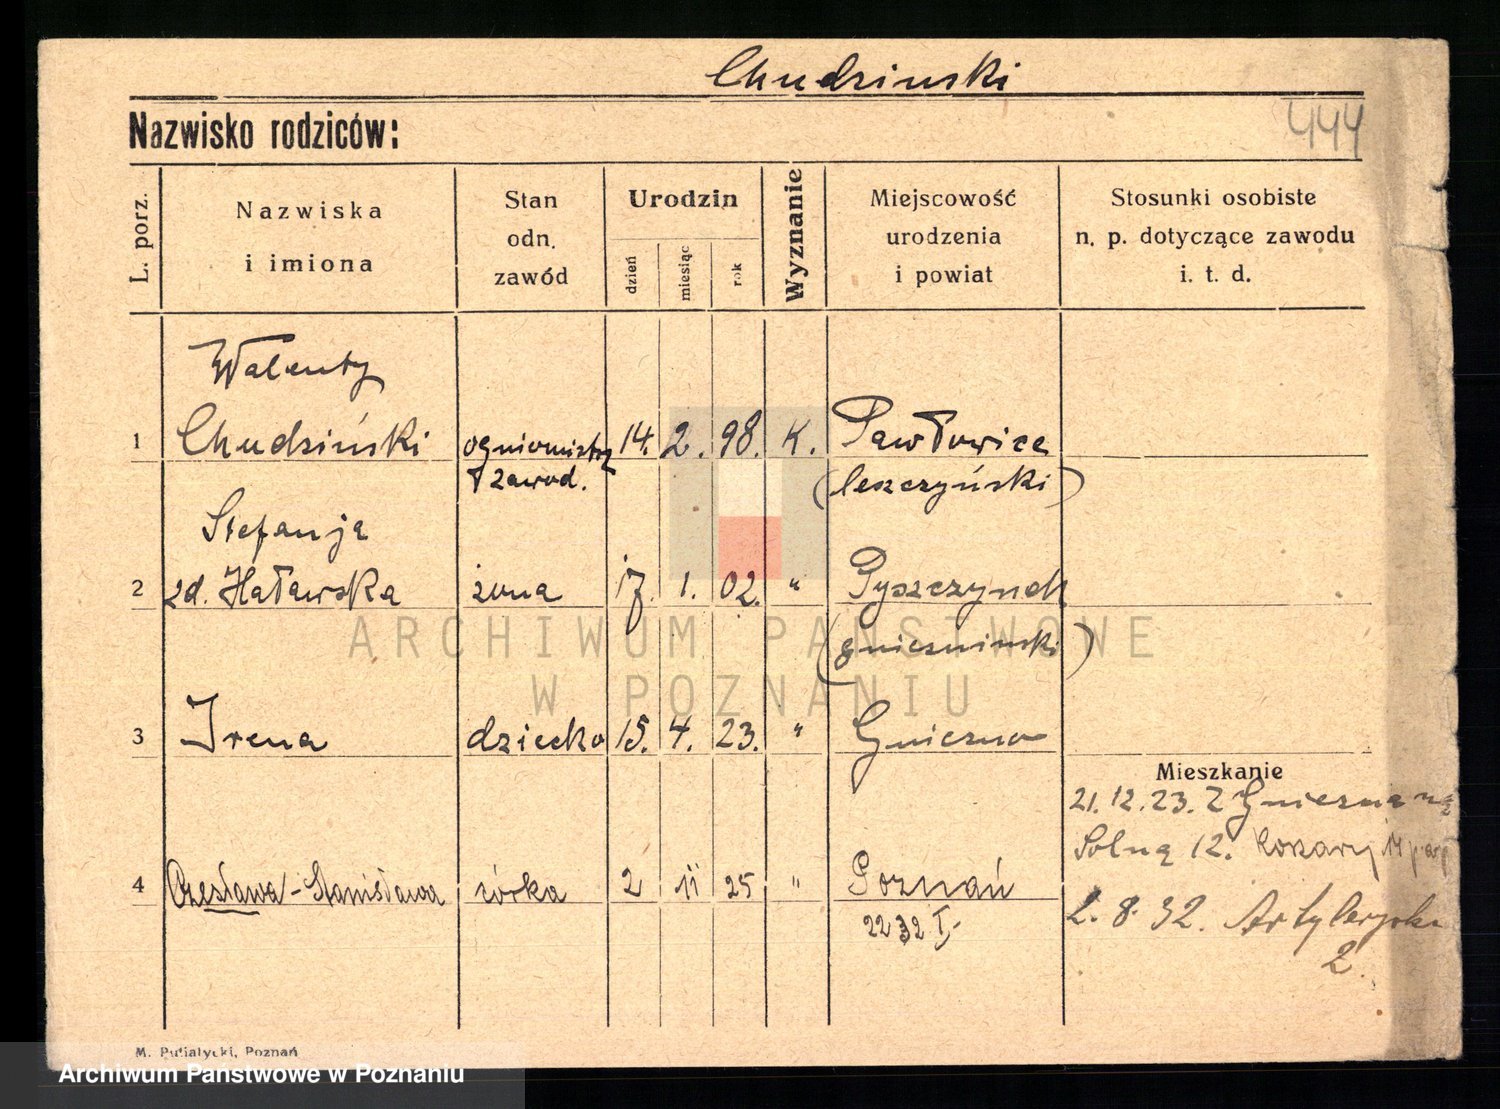 Chudzinski
Nazwisko rodziców:
444
L. porz.
Nazwiska
i imiona
Stan
odn.
zawód
Urodzin
dzień
miesiąc
rok
Wyznanie
Miejscowość
urodzenia
i powiat
Stosunki osobiste
n. p. dotyczące zawodu
i. t. d.
Walenty
1 Chudziński ogniomistrz 14. 2. 98. K. Pawłowice
zawod. (leszczyński)
Stefanja
2 zd. Haławska żona 17. 1. 02. " Pyszczynek
(gniezninski)
3 Irena dziecko 15. 4. 23. " Gniezno
Mieszkanie
21.12.23. Z Gniezna na
Solną 12. Koszary 14
4 Czesława-Stanisława córka 2 11 25 " Poznań
2232 I
2. 8. 32. Artyleryska
2.
ARCHIWUM PAŃSTWOWE
W POZNANIU
M. Putiatycki, Poznań
Archiwum Państwowe w Poznaniu